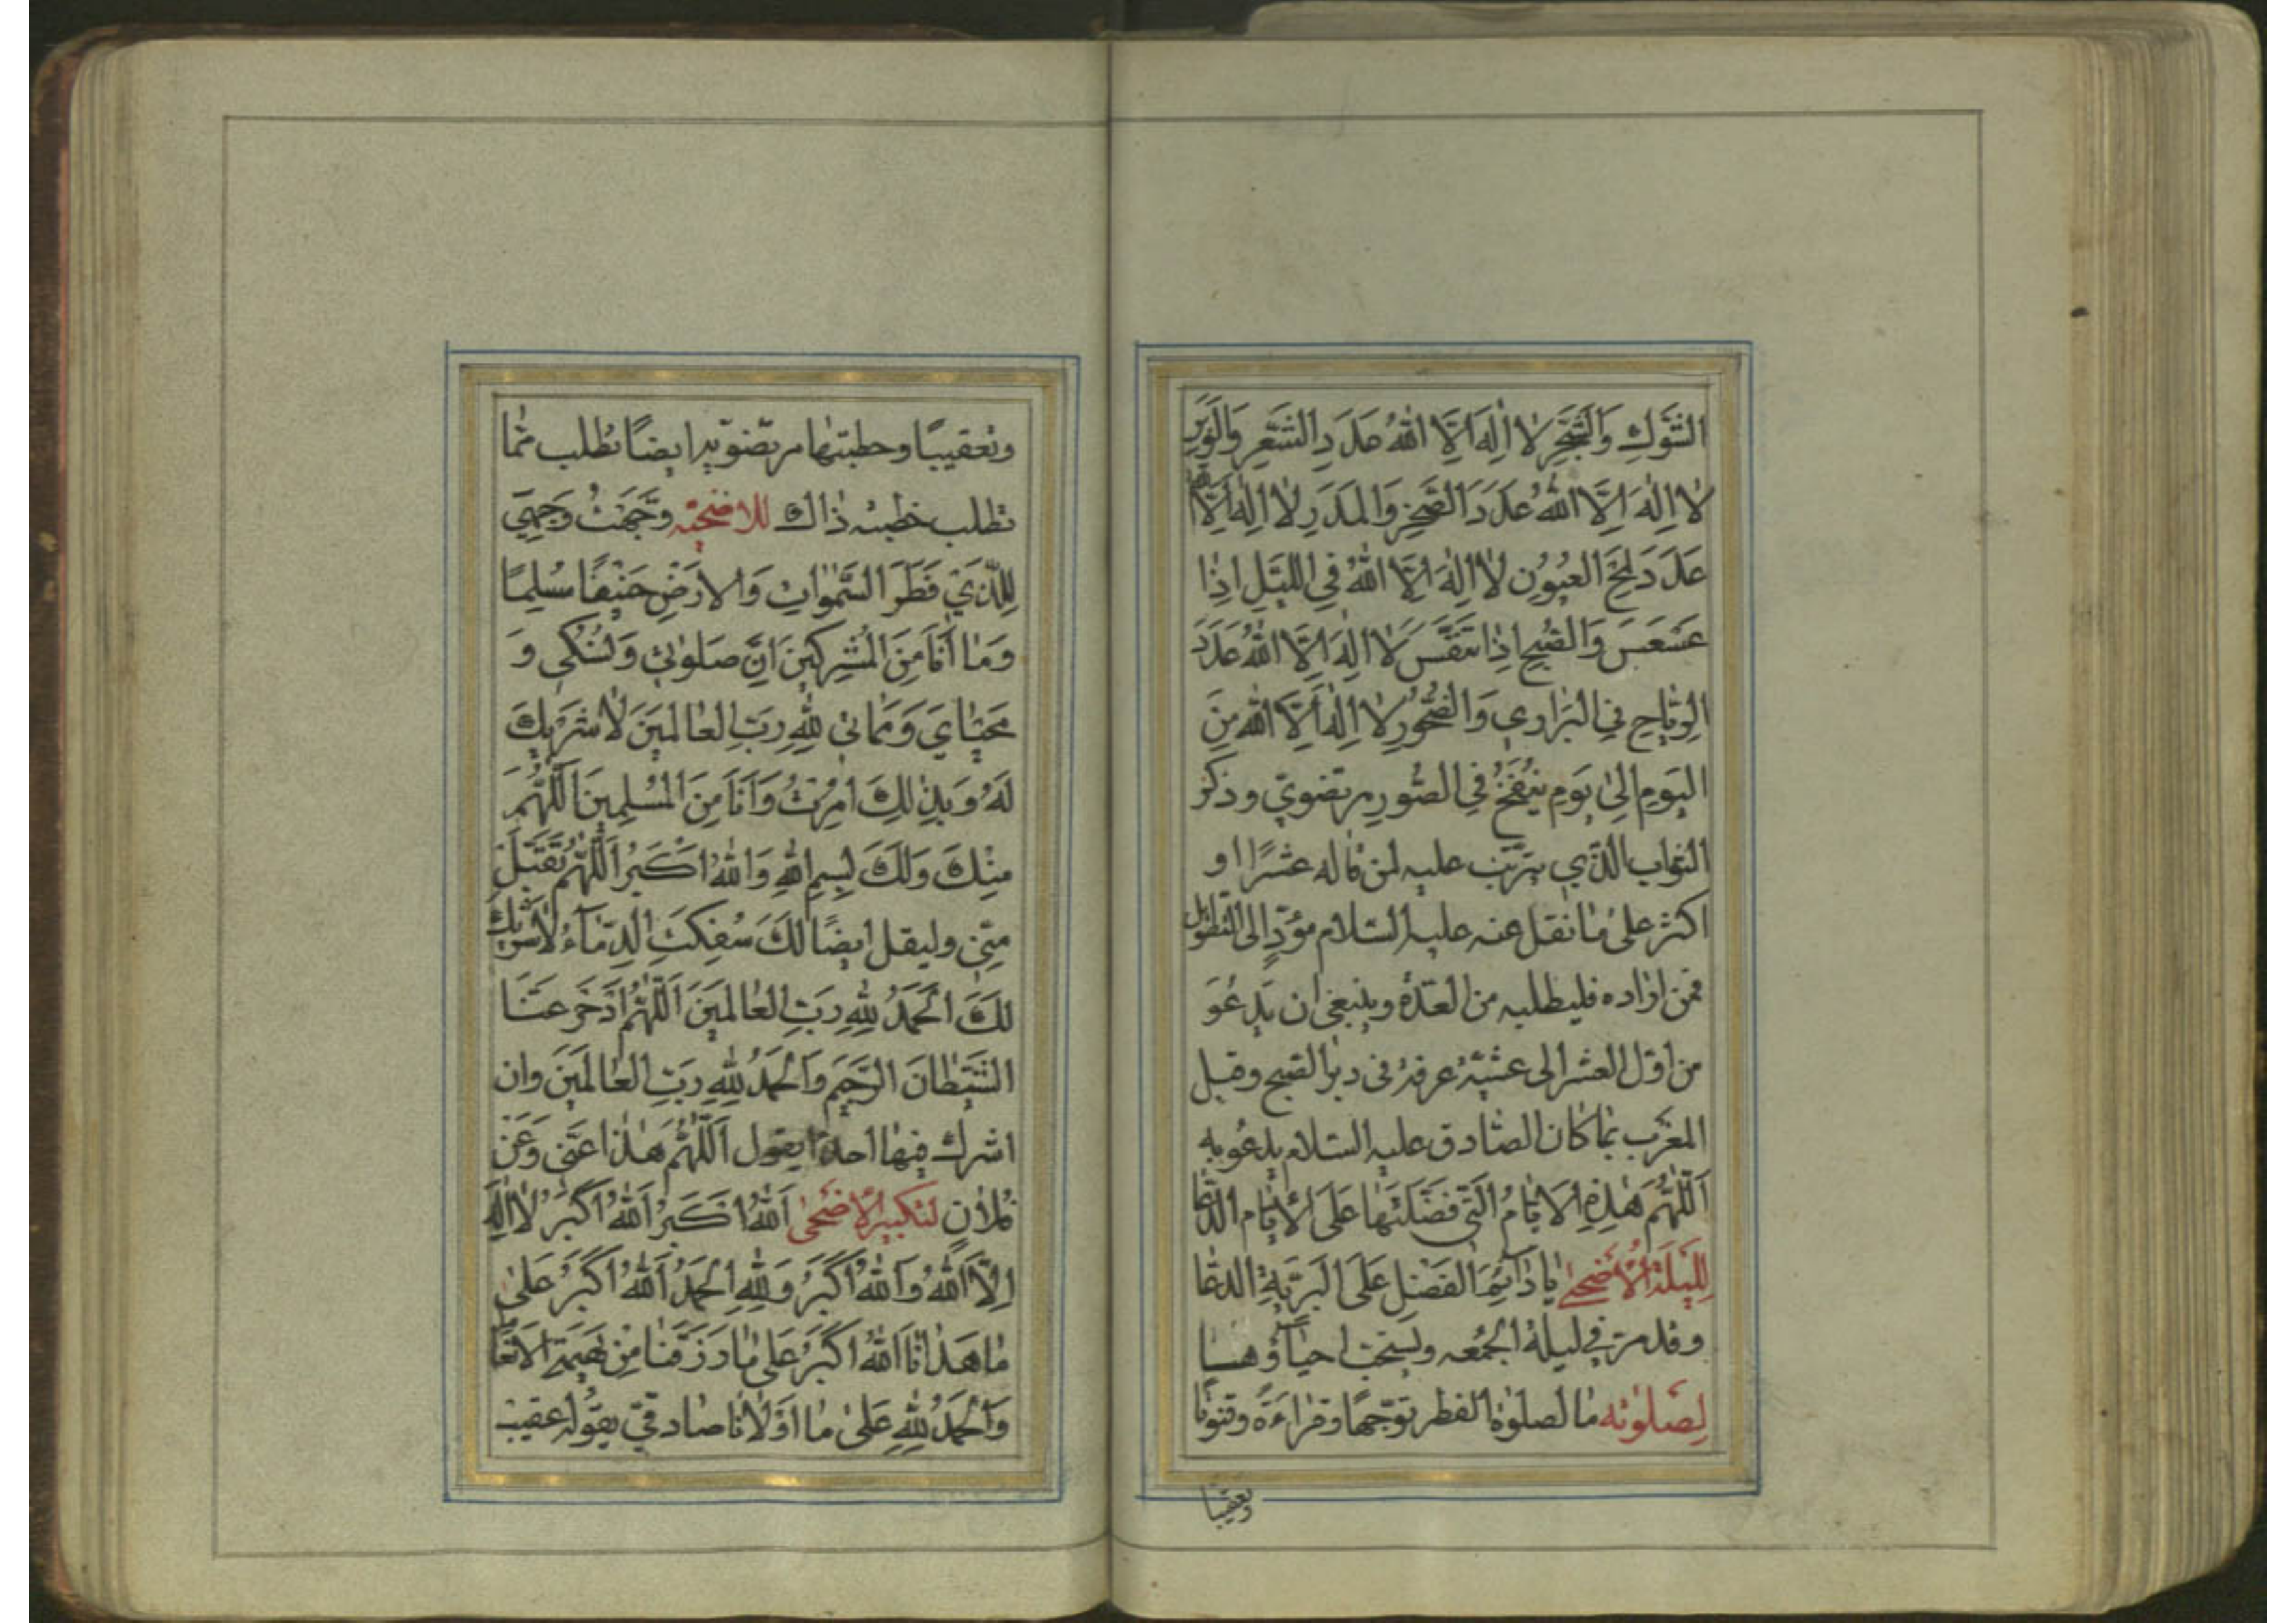 الشَّوْكِ وَالشَّجَرِ لَا اِلٰهَ اِلَّا اللهُ عَدَدَ الشَّعْرِ وَالْوَبَرِ
لَا اِلٰهَ اِلَّا اللهُ عَدَدَ الْحَجَرِ وَالْمَدَرِ لَا اِلٰهَ اِلَّا اللهُ
عَدَدَ لَمْحِ الْعُيُونِ لَا اِلٰهَ اِلَّا اللهُ فِي اللَّيْلِ اِذَا
عَسْعَسَ وَالصُّبْحِ اِذَا تَنَفَّسَ لَا اِلٰهَ اِلَّا اللهُ عَدَدَ
الرِّيَاحِ فِي الْبَرَارِي وَالصُّخُورِ لَا اِلٰهَ اِلَّا اللهُ مِنَ
الْيَوْمِ اِلٰى يَوْمِ يُنْفَخُ فِي الصُّورِ مرتضويّ وذكر
الثواب الّذي يترتّب عليه لمن قاله عشرًا او
اكثر على ما نقل عنه عليه السّلام مؤدٍّ الى التطويل
فمن اراده فليطلبه من العدّة وينبغي ان يَدعُوَ
من اوّل العشر الى عشيّة عرفة في دبر الصّبح وقبل
المغرب بما كان الصّادق عليه السّلام يدعُو به
اَللّٰهُمَّ هٰذِهِ الْاَيَّامُ الَّتِي فَضَّلْتَهَا عَلَى الْاَيَّامِ الدّعا
لِلَيْلَةِ الْاَضْحٰى يَا دَائِمَ الْفَضْلِ عَلَى الْبَرِيَّةِ الدعا
وقد مرّ في ليلة الجُمُعه ويستحبّ احياؤها
لِصَلوٰته ما لصلوٰة الفطر توجّهًا وقراءَةً وقنوتًا
وتعقيبًا
وتعقيبًا وخطبتها مرتضويّة ايضًا تطلب ممّا
تطلب خطبته ذاك للاضحيّه وَجَّهْتُ وَجْهِيَ
لِلَّذِي فَطَرَ السَّمٰوَاتِ وَالْاَرْضِ حَنِيفًا مُسْلِمًا
وَمَا اَنَا مِنَ الْمُشْرِكِينَ اِنَّ صَلوٰتِي وَنُسُكِي وَ
مَحْيَايَ وَمَمَاتِي لِلّٰهِ رَبِّ الْعَالَمِينَ لَا شَرِيكَ
لَهُ وَبِذٰلِكَ اُمِرْتُ وَاَنَا مِنَ الْمُسْلِمِينَ اَللّٰهُمَّ
مِنْكَ وَلَكَ بِسْمِ اللهِ وَاللهُ اَكْبَرُ اَللّٰهُمَّ تَقَبَّلْ
مِنّي وليقل ايضًا لَكَ سُفِكَتِ الدِّمَاءُ لَا شَرِيكَ
لَكَ الْحَمْدُ لِلّٰهِ رَبِّ الْعَالَمِينَ اَللّٰهُمَّ ادْخَرْ عَنَّا
الشَّيْطَانَ الرَّجِيمَ وَالْحَمْدُ لِلّٰهِ رَبِّ الْعَالَمِينَ وان
اشرك فيها احدًا يقول اَللّٰهُمَّ هٰذَا عَنِّي وَعَنْ
فُلَانٍ لتكبير الاضحى اَللهُ اَكْبَرُ اَللهُ اَكْبَرُ لَا اِلٰهَ
اِلَّا اللهُ وَاللهُ اَكْبَرُ وَلِلّٰهِ الْحَمْدُ اَللهُ اَكْبَرُ عَلٰى
مَا هَدَانَا اَللهُ اَكْبَرُ عَلٰى مَا رَزَقَنَا مِنْ بَهِيمَةِ الْاَنْعَامِ
وَالْحَمْدُ لِلّٰهِ عَلٰى مَا اَوْلَانَا صادقيّ يقوله عقيب